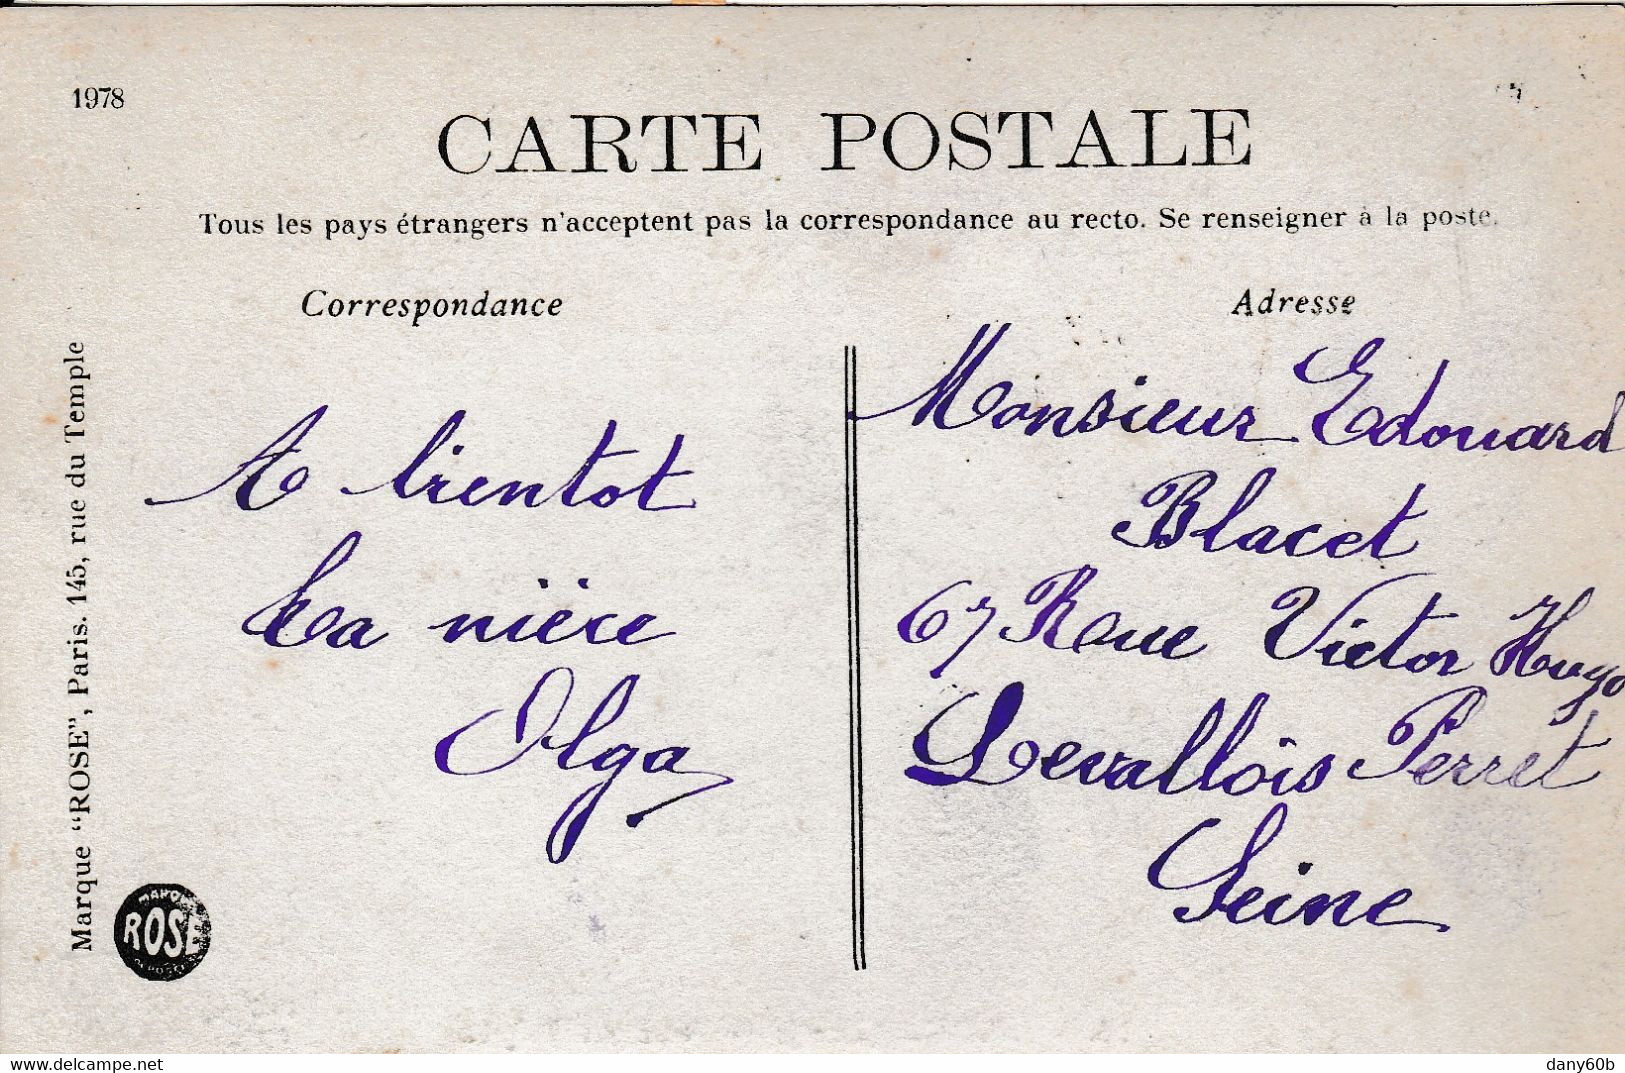 1978
CARTE POSTALE
Tous les pays étrangers n'acceptent pas la correspondance au recto. Se renseigner à la poste.
Correspondance
A bientot
ta nièce
Olga
Adresse
Monsieur Edouard
Blacet
67 Rue Victor Hugo
Levallois Perret
Seine
Marque "ROSE", Paris. 145, rue du Temple
ROSE
www.delcampe.net
dany60b